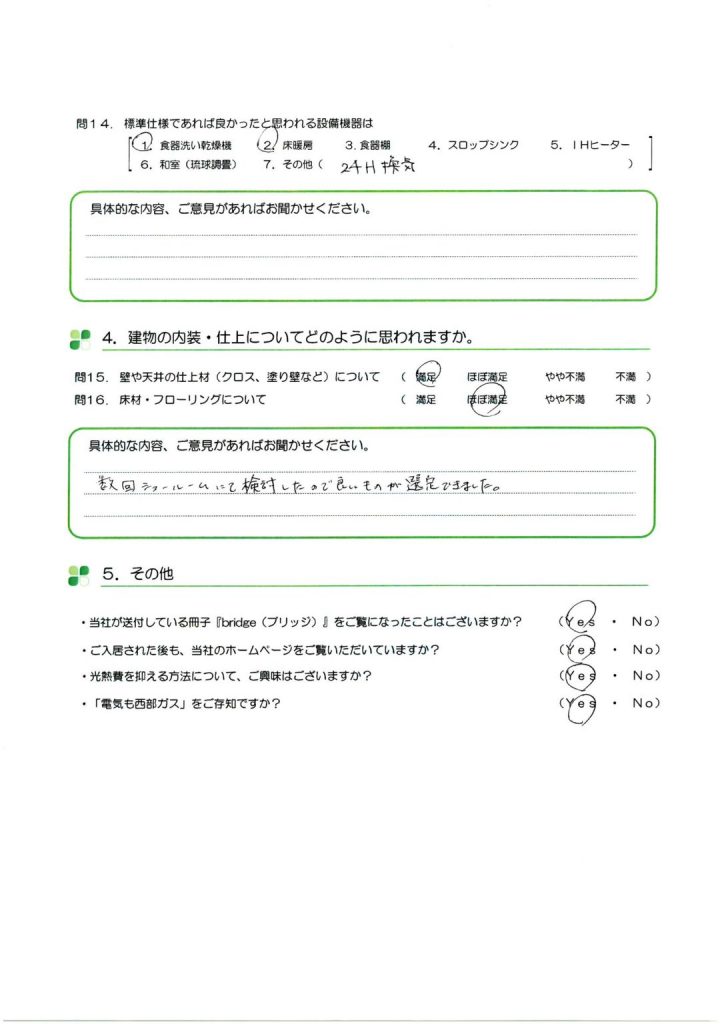 問14．標準仕様であれば良かったと思われる設備機器は
1．食器洗い乾燥機　2．床暖房　3．食器棚　4．スロップシンク　5．IHヒーター
6．和室（琉球調畳）　7．その他（　24H換気　）
具体的な内容、ご意見があればお聞かせください。
4．建物の内装・仕上についてどのように思われますか。
問15．壁や天井の仕上材（クロス、塗り壁など）について　（　満足　ほぼ満足　やや不満　不満　）
問16．床材・フローリングについて　（　満足　ほぼ満足　やや不満　不満　）
具体的な内容、ご意見があればお聞かせください。
数回ショールームにて検討したので良いものが選定できました。
5．その他
・当社が送付している冊子『bridge（ブリッジ）』をご覧になったことはございますか？　（Yes　・　No）
・ご入居された後も、当社のホームページをご覧いただいていますか？　（Yes　・　No）
・光熱費を抑える方法について、ご興味はございますか？　（Yes　・　No）
・「電気も西部ガス」をご存知ですか？　（Yes　・　No）